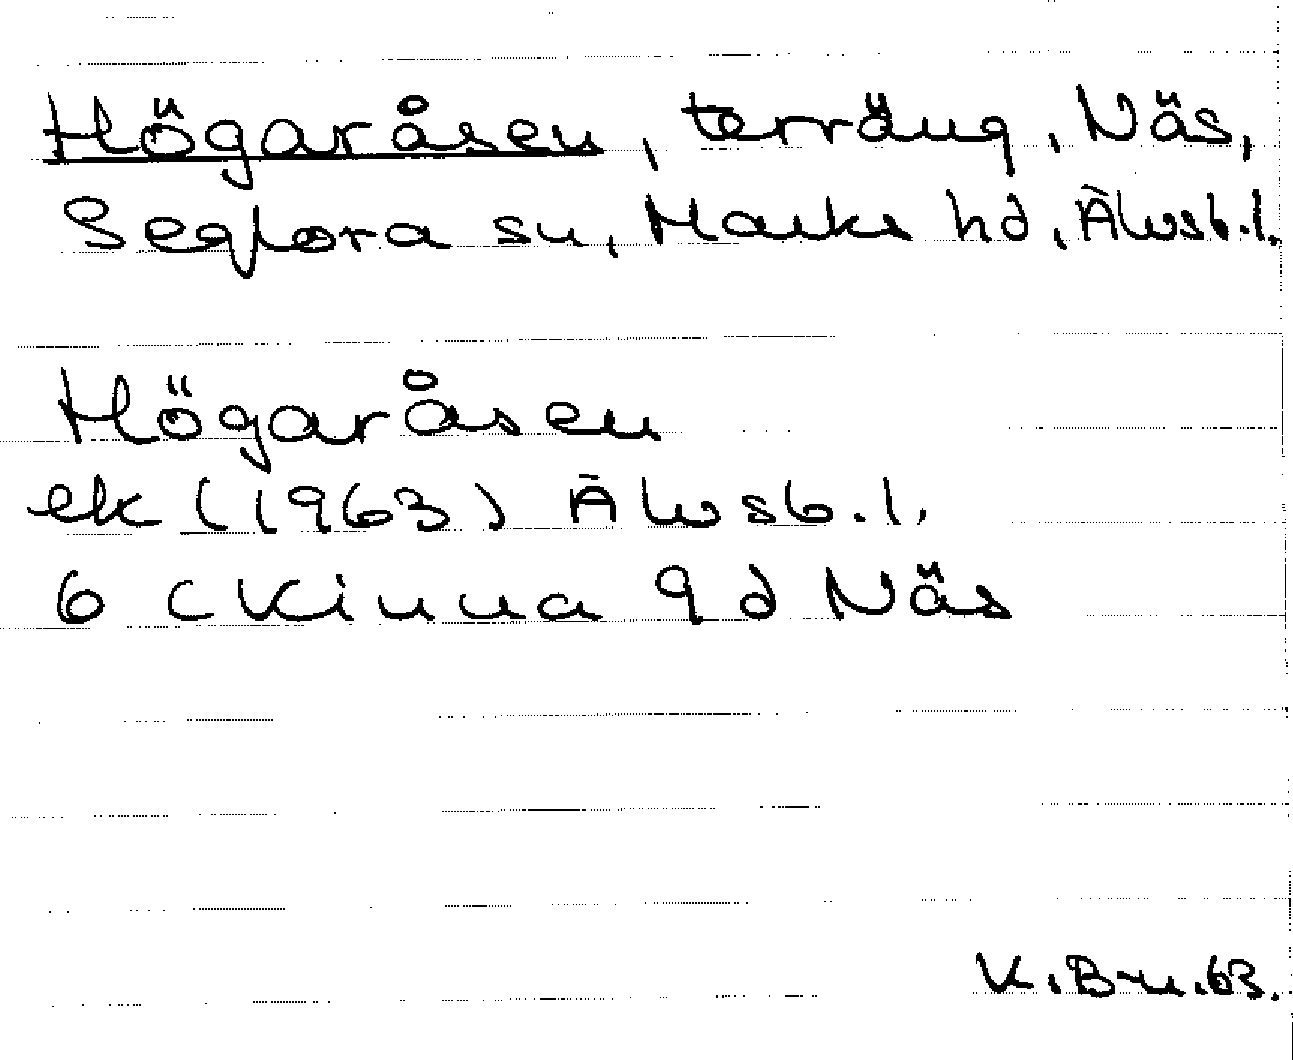 Högaråsen, terräng, Näs,
Seglora sn, Marks hd, Älvsb.l.
Högaråsen
ek (1963) Älvsb.l.
6 C Kinna 9 d Näs
K.B-n.63.